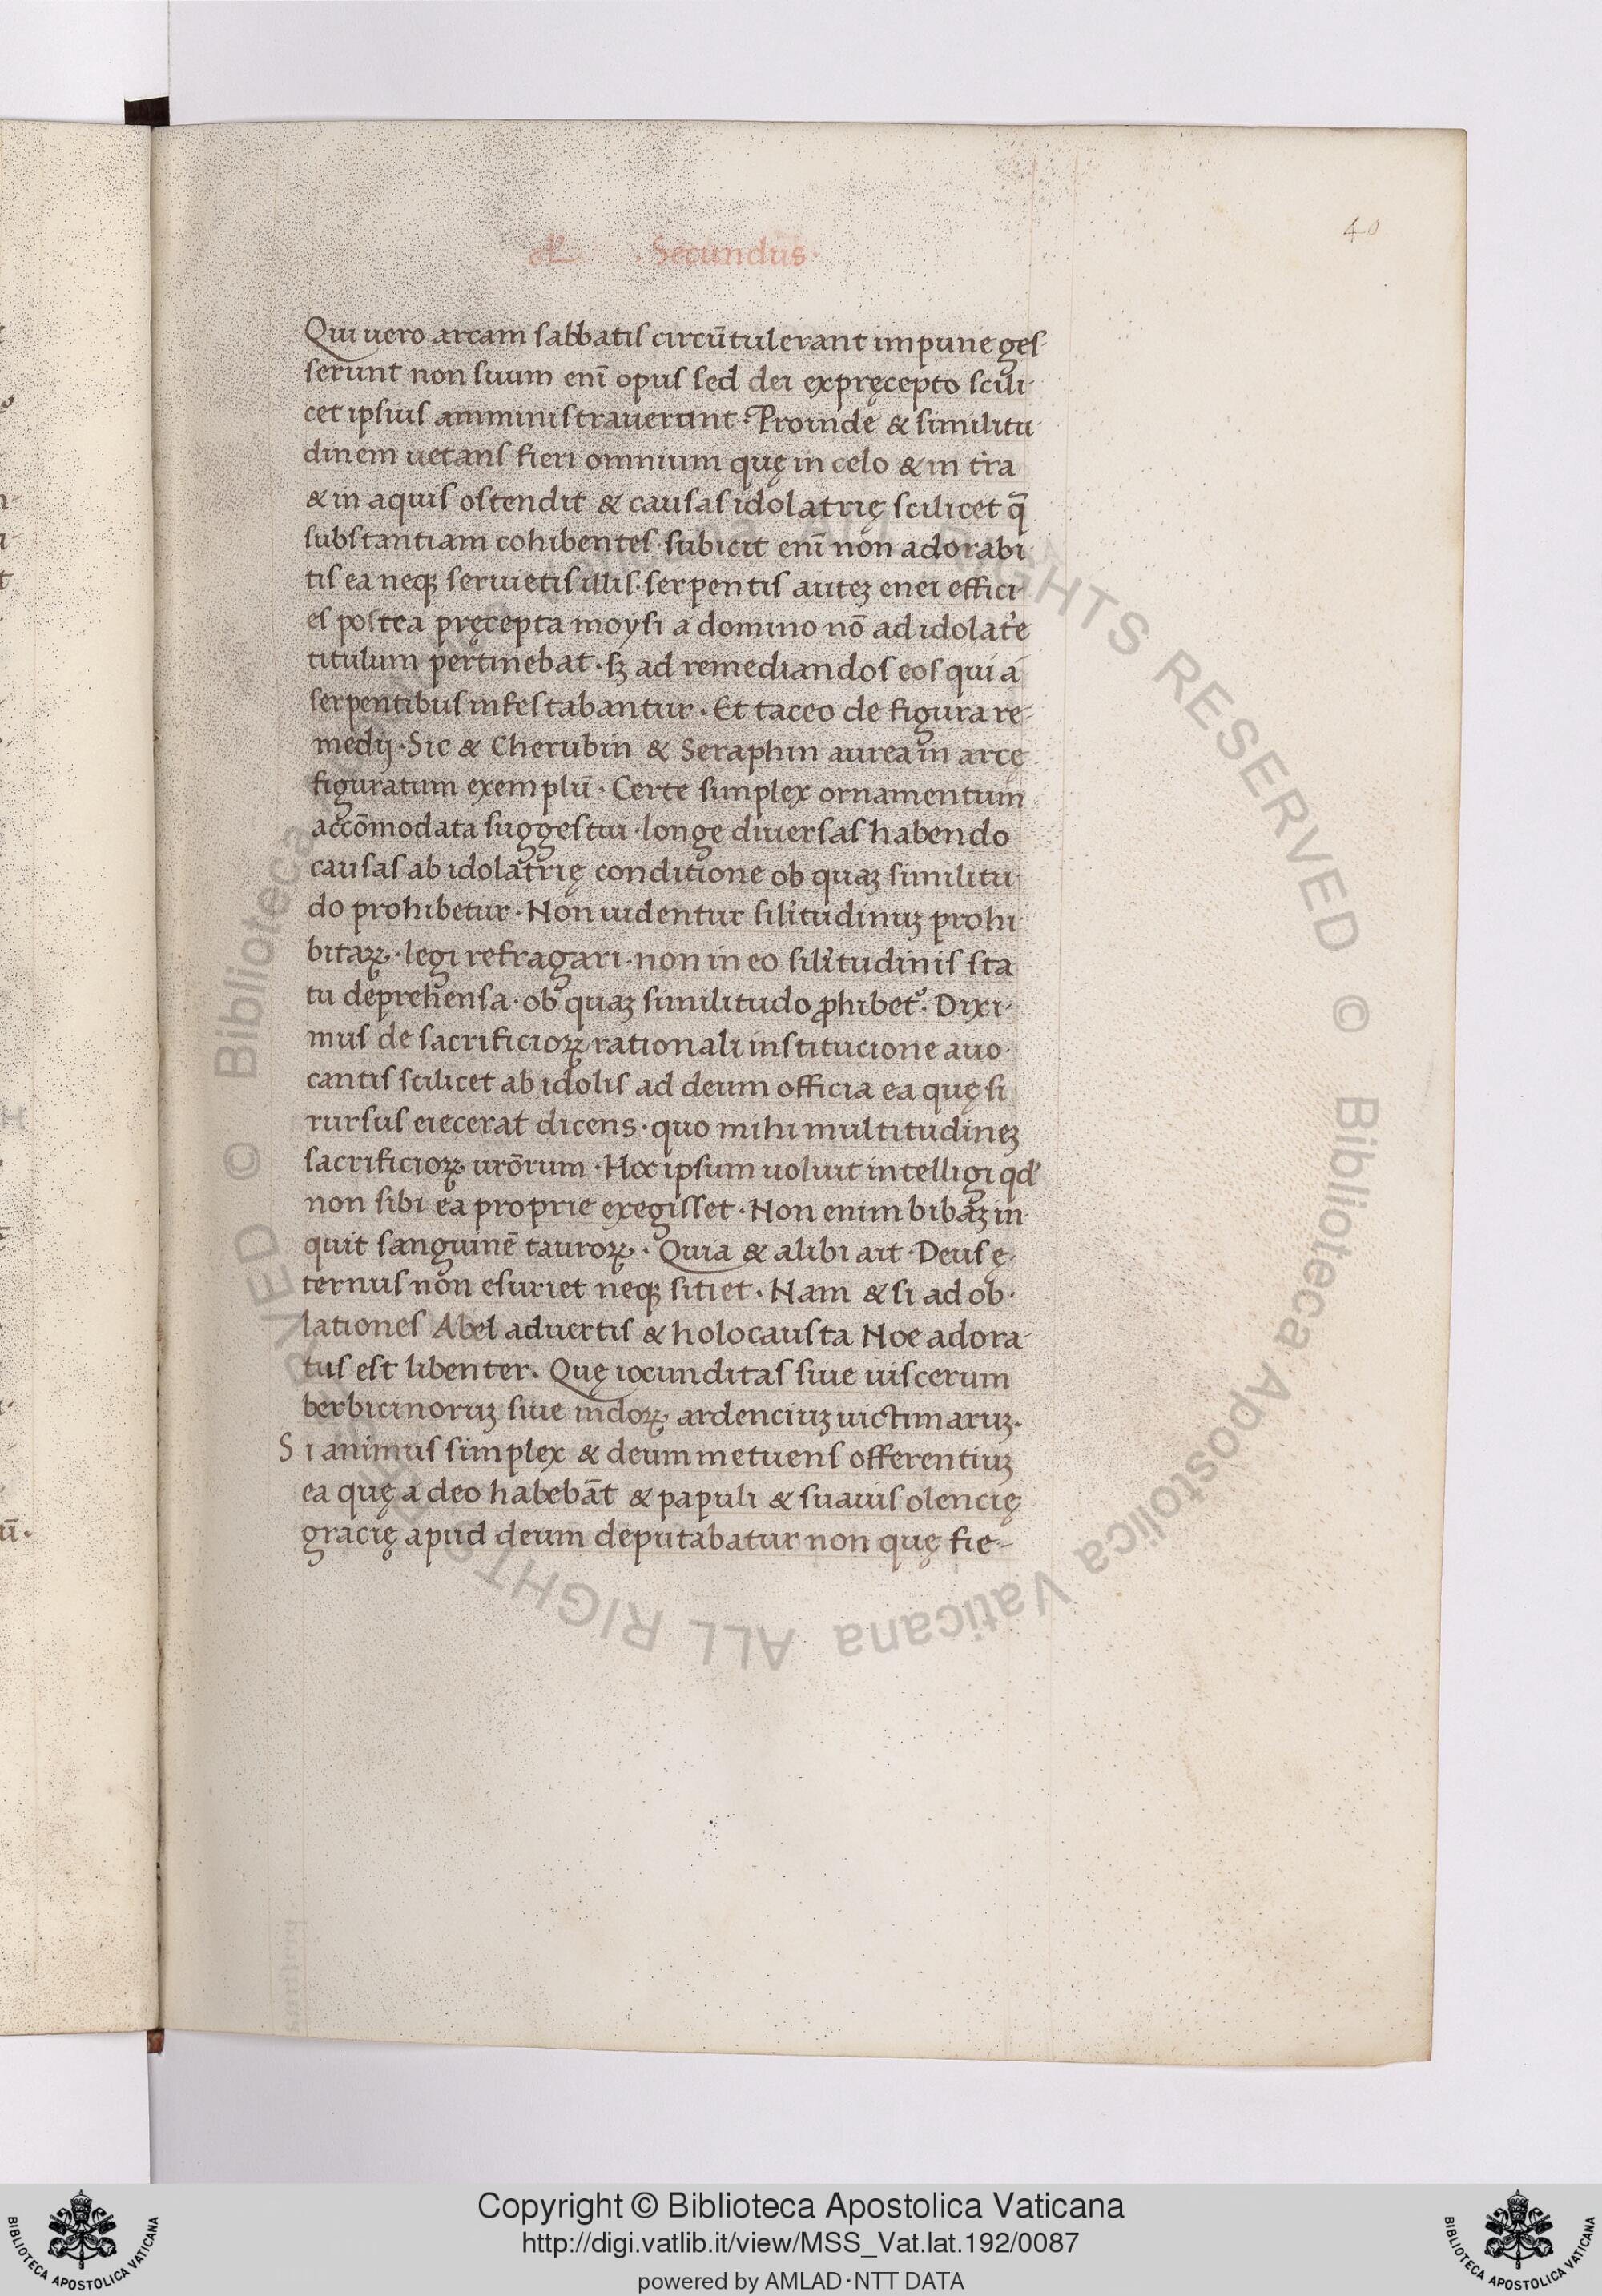 40
· Secundus ·
Qui uero arcam sabbatis circūtulerant impune ges·
serunt non suum enī opus sed dei expręcepto scili·
cet ipsius amministrauerunt · Proinde & similitu·
dinem uetans fieri omnium quę in celo & in tr̄a
& in aquis ostendit & causas idolatrię scilicet q̄
substantiam cohibentes · subicit enī non adorabi·
tis ea neqꝫ seruietis illis · serpentis auteꝫ enei effici·
es postea pręcepta moysi a domino nō ad idolatr̾e
titulum pertinebat · sꝫ ad remediandos eos qui a
serpentibus infestabantur · Et taceo de figura re-
medij · Sic & Cherubin & Seraphin aurea in arcę
figuratum exemplū · Certe simplex ornamentum
accōmodata suggestui · longe diuersas habendo
causas ab idolatrię conditione ob quaꝫ similitu·
do prohibetur · Non uidentur sili̾tudinuꝫ prohi·
bitaꝝ · legi refragari · non in eo sili̾tudinis sta
tu deprehensa · ob quaꝫ similitudo ꝓhibet᷒ · Dixi·
mus de sacrificioꝝ rationali institucione auo·
cantis scilicet ab idolis ad deum officia ea quę si
rursus eiecerat dicens · quo mihi multitudineꝫ
sacrificioꝝ urōrum · Hoc ipsum uoluit intelligi qd̾
non sibi ea proprie exegisset · Non enim bibaꝫ in·
quit sanguinē tauroꝝ · Quia & alibi ait · Deus ę·
ternus non esuriet neqꝫ sitiet · Nam & si ad ob·
lationes Abel aduertis & holocausta Noe adora-
tus est libenter. Quę iocunditas siue uiscerum
berbicinoruꝫ siue nidoꝝ ardenciuꝫ uictimaruꝫ.
S i animus simplex & deum metuens offerentiuꝫ
ea quę a deo habebāt & papuli & suauis olencię
gracię apud deum deputabatur non quę fie-
Copyright © Biblioteca Apostolica Vaticana
http://digi.vatlib.it/view/MSS_Vat.lat.192/0087
powered by AMLAD·NTT DATA